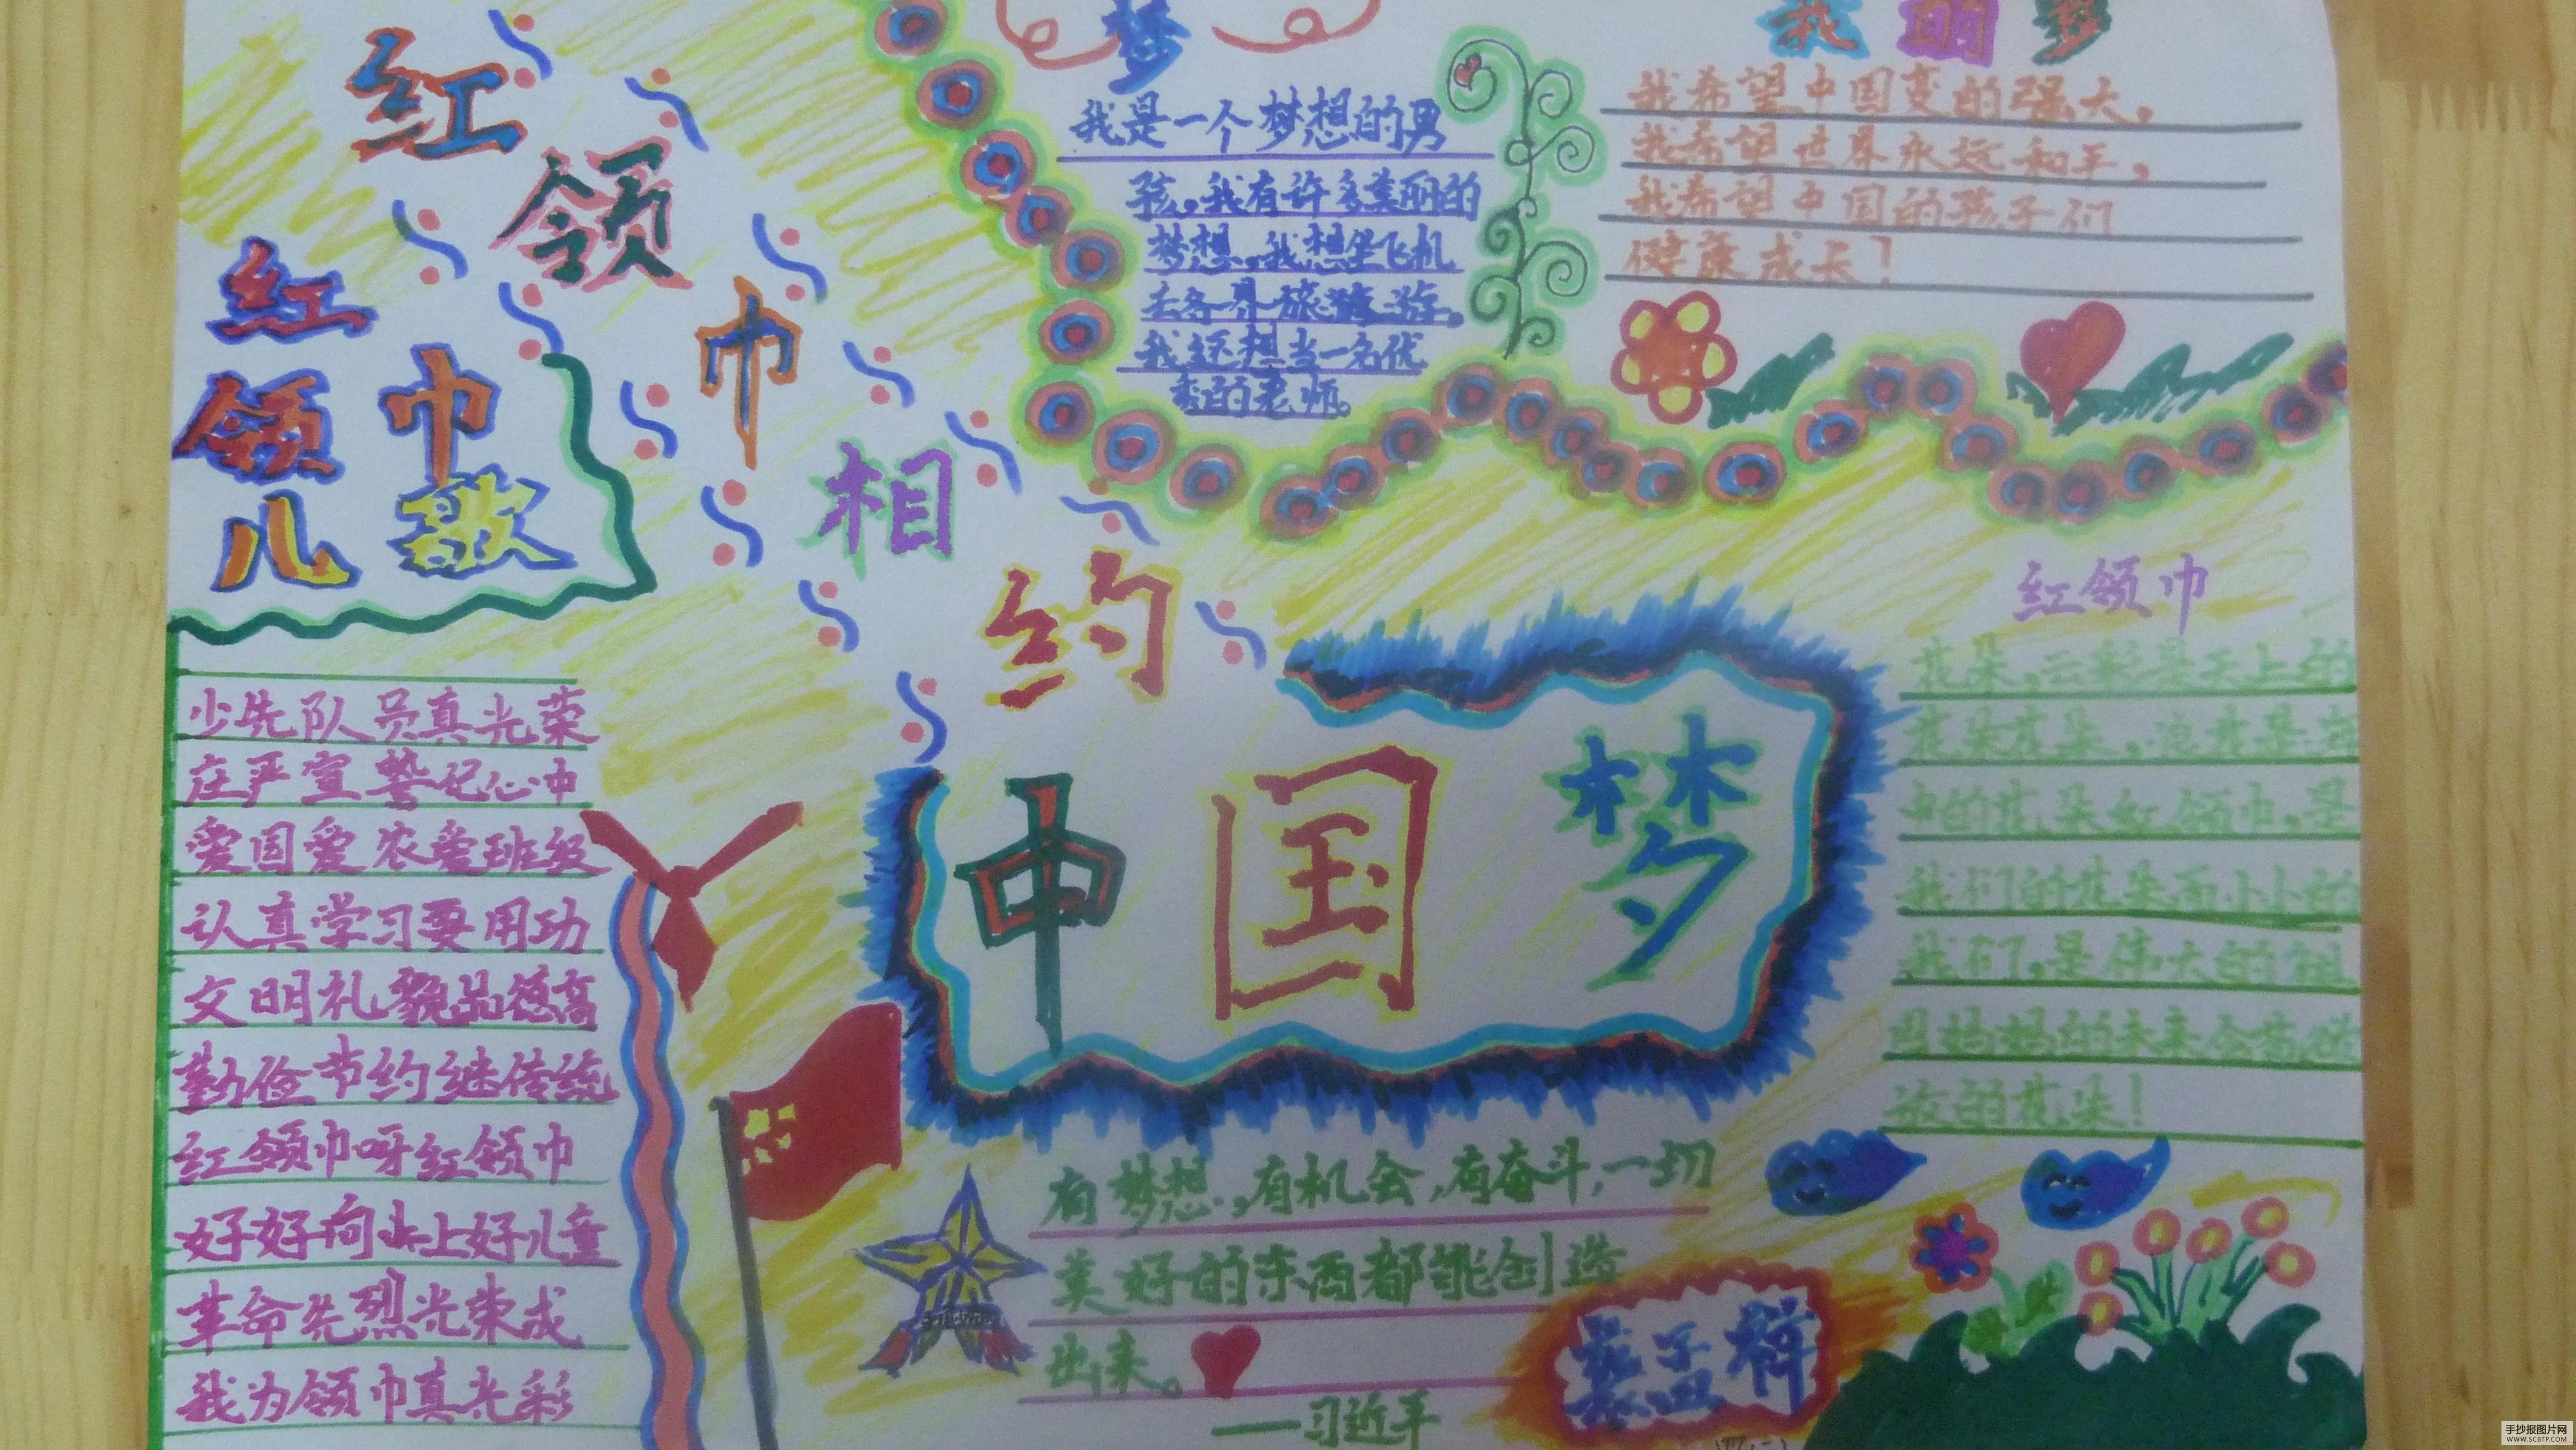 红领巾相约
中国梦
红领巾
儿歌
少先队员真光荣
庄严宣誓记心中
爱国爱农爱班级
认真学习要用功
文明礼貌品德高
勤俭节约继传统
红领巾呀红领巾
好好向上好儿童
革命先烈光荣成
我为领巾真光彩
梦
我是一个梦想的男
孩。我有许多美丽的
梦想。我想坐飞机
去各界旅游。
我还想当一名优
秀的老师。
我的梦
我希望中国变的强大,
我希望世界永远和平,
我希望中国的孩子们
健康成长!
红领巾
花朵,云彩是天上的
花朵花朵,浪花是
中的花朵红领巾,是
我们的花朵而小小的
我们,是伟大的祖
妈妈的未来会
放的花朵!
有梦想,有机会,有奋斗,一切
美好的东西都能创造
出来。
——习近平
手抄报图片网
WWW.SCBTP.COM